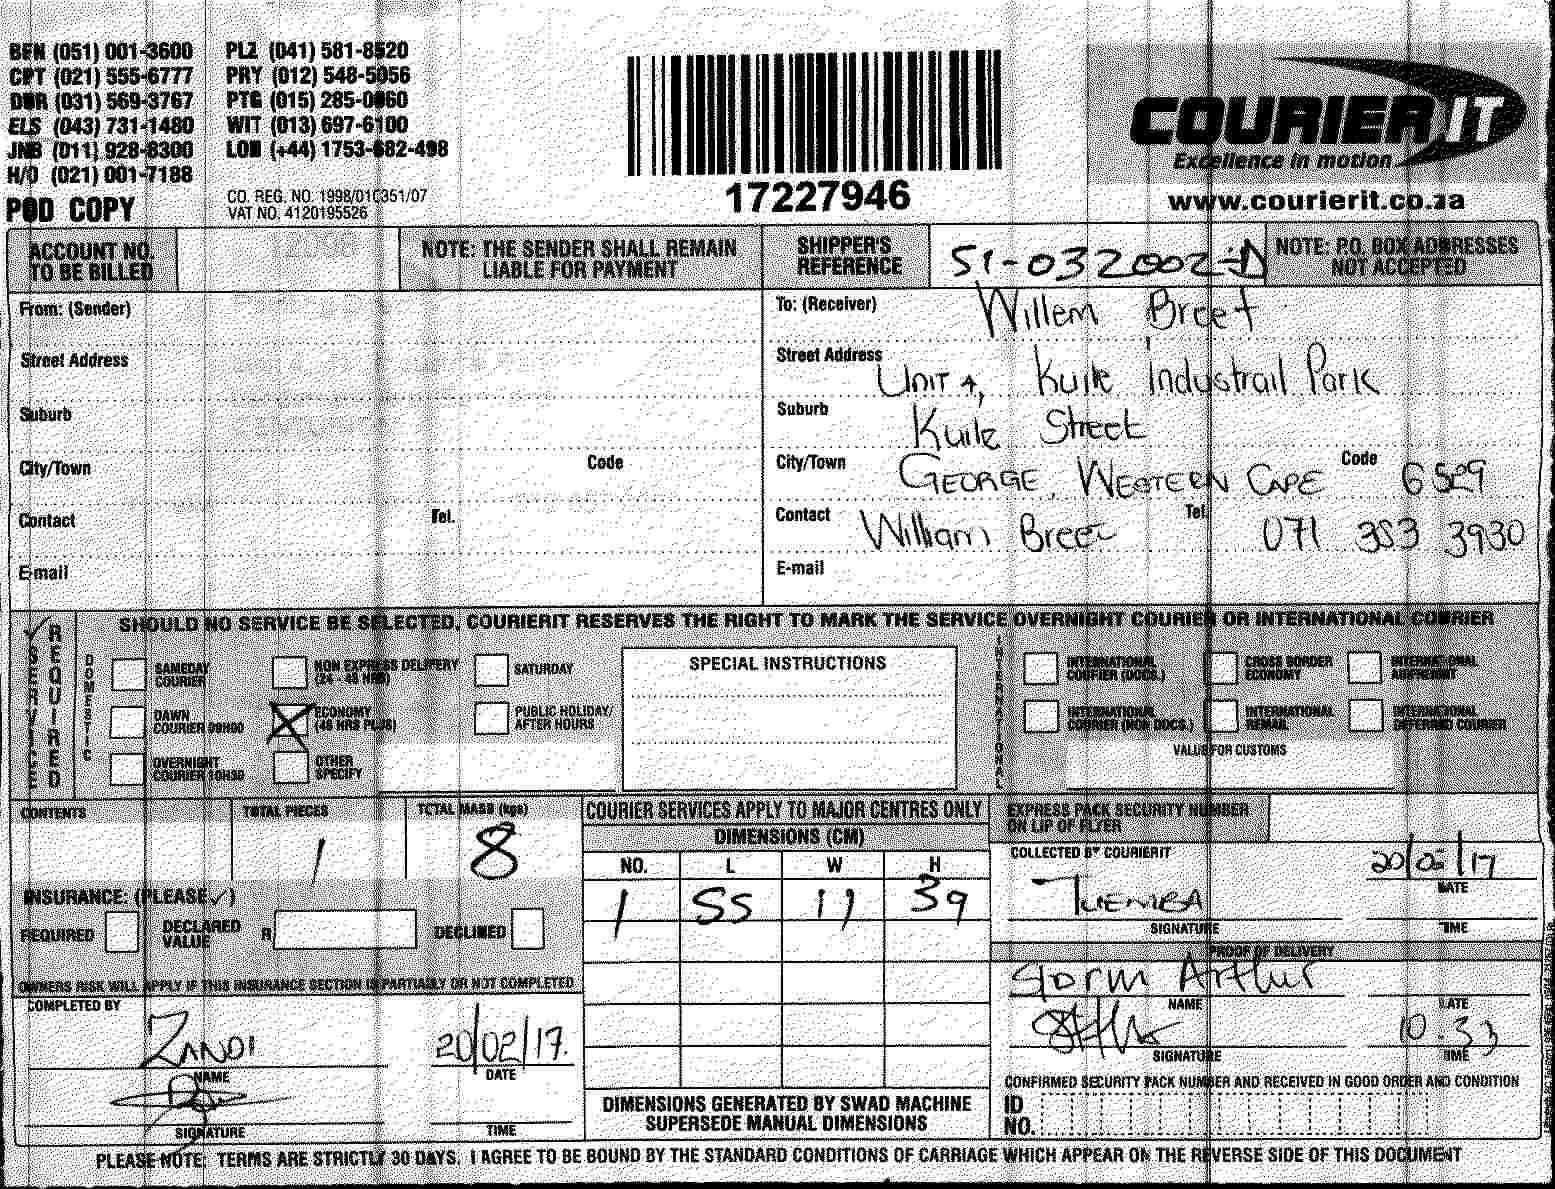 BFN (051) 001-3600 PLZ (041) 581-8520
CPT (021) 555-6777 PRY (012) 548-5056
DUR (031) 569-3767 PTG (015) 285-0060
ELS (043) 731-1480 WIT (013) 697-6100
JNB (011) 928-8300 LON (+44) 1753-682-498
H/O (021) 001-7188
POD COPY
CO. REG. NO. 1998/010351/07
VAT NO. 4120195526
17227946
COURIER IT
Excellence in motion
www.courierit.co.za
ACCOUNT NO. TO BE BILLED
NOTE: THE SENDER SHALL REMAIN LIABLE FOR PAYMENT
SHIPPER'S REFERENCE S1-032002-D
NOTE: P.O. BOX ADDRESSES NOT ACCEPTED
From: (Sender)
Street Address
Suburb
City/Town Code
Contact Tel.
E-mail
To: (Receiver) Willem Breet
Street Address Unit 4, Kuile Industrail Park
Suburb Kuile Street
City/Town GEORGE, WESTERN CAPE Code 6529
Contact William Breet Tel. 071 383 3930
E-mail
SERVICE REQUIRED
SHOULD NO SERVICE BE SELECTED, COURIERIT RESERVES THE RIGHT TO MARK THE SERVICE OVERNIGHT COURIER OR INTERNATIONAL COURIER
DOMESTIC
SAMEDAY COURIER
NON EXPRESS DELIVERY (24 - 48 HRS)
SATURDAY
DAWN COURIER 09H00
ECONOMY (48 HRS PLUS)
PUBLIC HOLIDAY/ AFTER HOURS
OVERNIGHT COURIER 10H30
OTHER SPECIFY
SPECIAL INSTRUCTIONS
INTERNATIONAL
INTERNATIONAL COURIER (DOCS.)
CROSS BORDER ECONOMY
INTERNATIONAL AIRFREIGHT
INTERNATIONAL COURIER (NON DOCS.)
INTERNATIONAL REMAIL
INTERNATIONAL DEFERRED COURIER
VALUE FOR CUSTOMS
CONTENTS
TOTAL PIECES 1
TOTAL MASS (kgs) 8
INSURANCE: (PLEASE ✓)
REQUIRED DECLARED VALUE R DECLINED
OWNERS RISK WILL APPLY IF THIS INSURANCE SECTION IS PARTIALLY OR NOT COMPLETED
COMPLETED BY
ZANDI 20/02/17.
NAME DATE
SIGNATURE TIME
COURIER SERVICES APPLY TO MAJOR CENTRES ONLY
DIMENSIONS (CM)
NO. L W H
1 55 11 39
DIMENSIONS GENERATED BY SWAD MACHINE
SUPERSEDE MANUAL DIMENSIONS
EXPRESS PACK SECURITY NUMBER ON LIP OF FLYER
COLLECTED BY COURIERIT
THEMBA 20/02/17
DATE
SIGNATURE TIME
PROOF OF DELIVERY
Storm Arthur
NAME DATE
10.33
SIGNATURE TIME
CONFIRMED SECURITY PACK NUMBER AND RECEIVED IN GOOD ORDER AND CONDITION
ID NO.
PLEASE NOTE: TERMS ARE STRICTLY 30 DAYS. I AGREE TO BE BOUND BY THE STANDARD CONDITIONS OF CARRIAGE WHICH APPEAR ON THE REVERSE SIDE OF THIS DOCUMENT